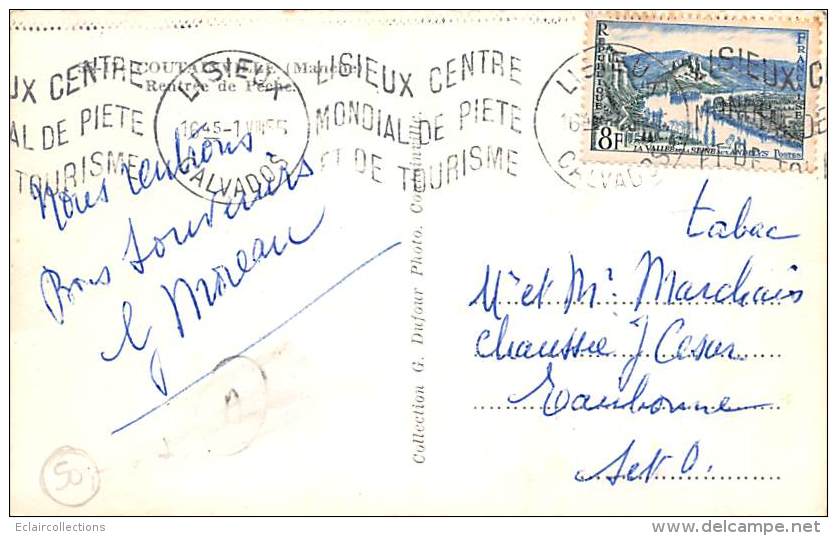 COUTAINVILLE (Manche)
Rentrée de Pêche.
UX CENTRE
AL DE PIETE
TOURISME
LISIEUX
16 45 - 1 VIII 55
CALVADOS
LISIEUX CENTRE
MONDIAL DE PIETE
ET DE TOURISME
LISIEUX
CALVADOS
REPUBLIQUE FRANÇAISE
8F
LA VALLÉE DE LA SEINE AUX ANDELYS POSTES
LISIEUX C
Nous rentrons
Bons souvenirs
Moreau
Collection G. Dufour Photo. Coutainville.
tabac
Mr et Me Marchais
chaussée J Cesar
Eaubonne
S et O.
50
Eclaircollections
www.delcampe.net